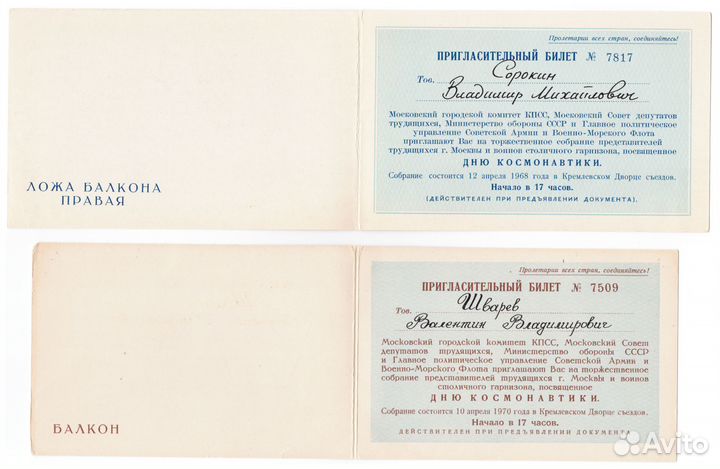 Пролетарии всех стран, соединяйтесь!
ПРИГЛАСИТЕЛЬНЫЙ БИЛЕТ № 7817
Тов. Сорокин
Владимир Михайлович
Московский городской комитет КПСС, Московский Совет депутатов
трудящихся, Министерство обороны СССР и Главное политическое
управление Советской Армии и Военно-Морского Флота
приглашают Вас на торжественное собрание представителей
трудящихся г. Москвы и воинов столичного гарнизона, посвященное
ДНЮ КОСМОНАВТИКИ.
Собрание состоится 12 апреля 1968 года в Кремлевском Дворце съездов.
Начало в 17 часов.
(ДЕЙСТВИТЕЛЕН ПРИ ПРЕДЪЯВЛЕНИИ ДОКУМЕНТА).
ЛОЖА БАЛКОНА
ПРАВАЯ
Пролетарии всех стран, соединяйтесь!
ПРИГЛАСИТЕЛЬНЫЙ БИЛЕТ № 7509
Тов. Шварев
Валентин Владимирович
Московский городской комитет КПСС, Московский Совет
депутатов трудящихся, Министерство обороны СССР
и Главное политическое управление Советской Армии и
Военно-Морского Флота приглашают Вас на торжественное
собрание представителей трудящихся г. Москвы и воинов
столичного гарнизона, посвященное
ДНЮ КОСМОНАВТИКИ.
Собрание состоится 10 апреля 1970 года в Кремлевском Дворце съездов.
Начало в 17 часов.
ДЕЙСТВИТЕЛЕН ПРИ ПРЕДЪЯВЛЕНИИ ДОКУМЕНТА
БАЛКОН
Avito